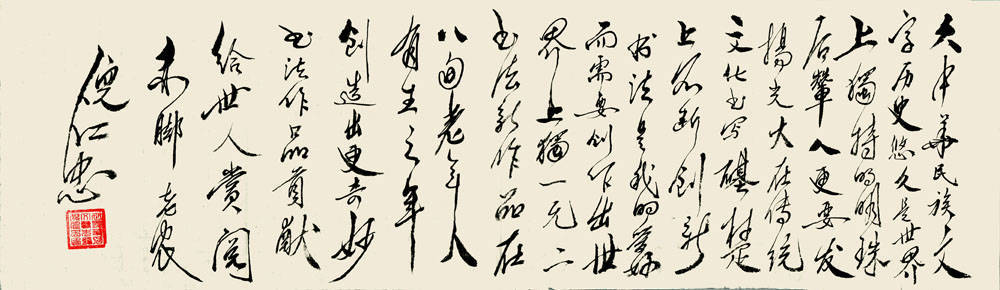 大中華民族文
字历史悠久是世界
上獨特的明珠
后輩人更要发
揚光大在传统
文化书写礎
上不断创新
书法是我的爱好
而需要创作出世
界上獨一无二
书法新作品在
八旬老年人
有生之年
创造出更奇妙
书法作品貢献
给世人赏阅
赤脚老农
倪仁忠